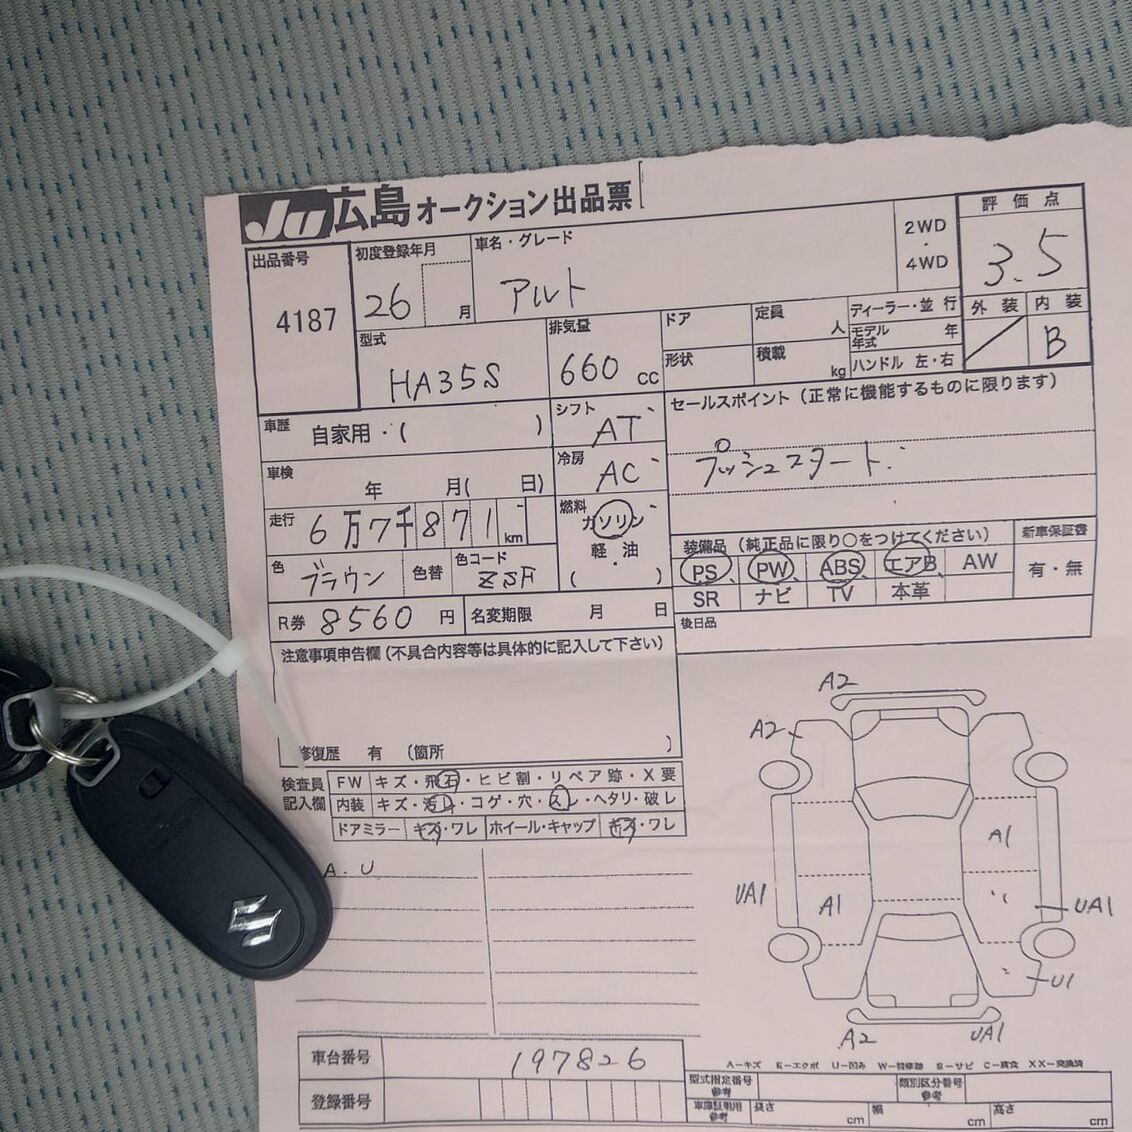 Ju 広島 オークション出品票
出品番号
4187
初度登録年月
26 月
車名・グレード
アルト
2WD
・
4WD
評価点
3.5
型式
HA35S
排気量
660 cc
ドア
定員 人
ディーラー・並行
モデル年式 年
外装 内装
形状
積載 kg
ハンドル 左・右
B
車歴 自家用・( )
シフト
AT
セールスポイント（正常に機能するものに限ります）
プッシュスタート
車検 年 月( 日)
冷房
AC
走行 6万7千871 km
燃料
ガソリン
・
軽油
( )
色 ブラウン 色替 色コード ZSF
装備品（純正品に限り○をつけてください）
新車保証書
PS PW ABS エアB AW
有・無
SR ナビ TV 本革
R券 8560 円 名変期限 月 日
後日品
注意事項申告欄（不具合内容等は具体的に記入して下さい）
修復歴 有 （箇所 ）
検査員記入欄
FW キズ・飛石・ヒビ割・リペア跡・X要
内装 キズ・汚レ・コゲ・穴・スレ・ヘタリ・破レ
ドアミラー キズ・ワレ ホイール・キャップ キズ・ワレ
A.U
A2
A2
A1
UA1 A1 UA1
U1
A2 UA1
車台番号 197826
登録番号
A－キズ E－エクボ U－凹み W－補修跡 S－サビ C－腐食 XX－交換済
型式指定番号 参考
類別区分番号 参考
長さ cm 幅 cm 高さ cm